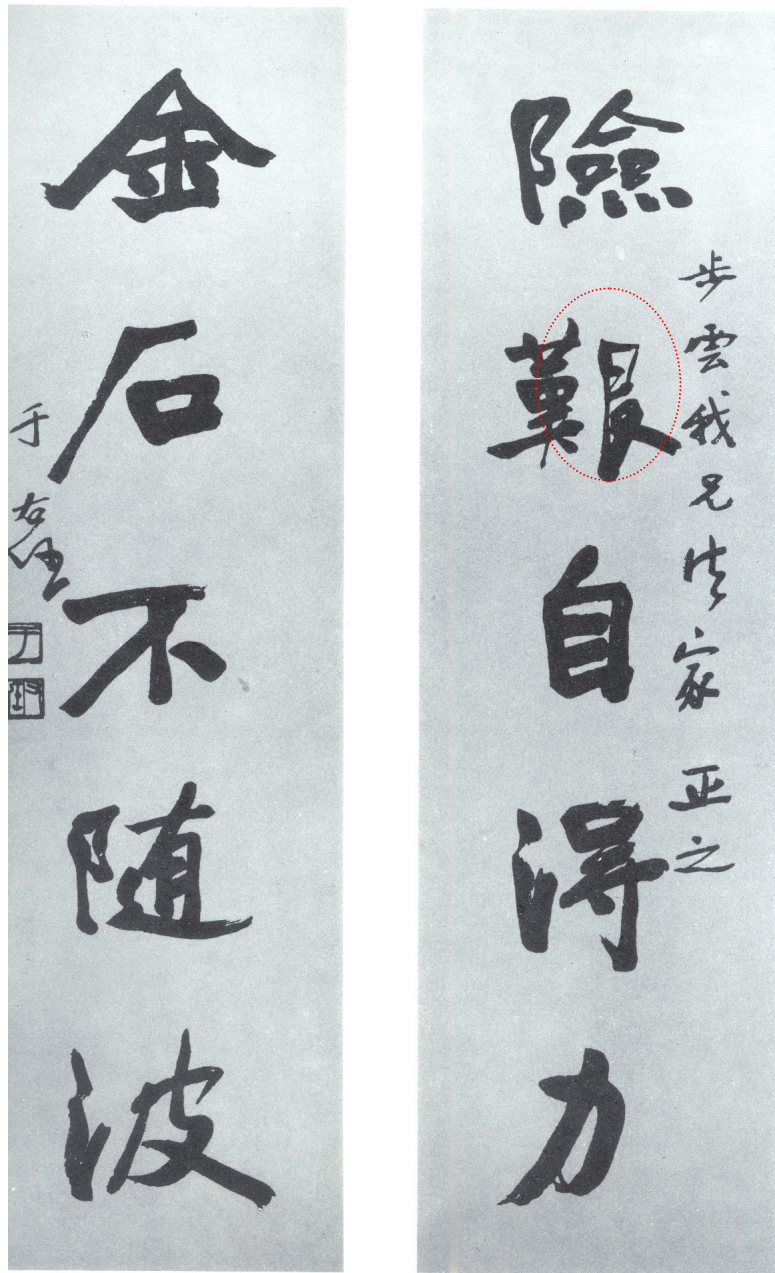 險艱自得力
步雲我兄法家正之
金石不随波
于右任